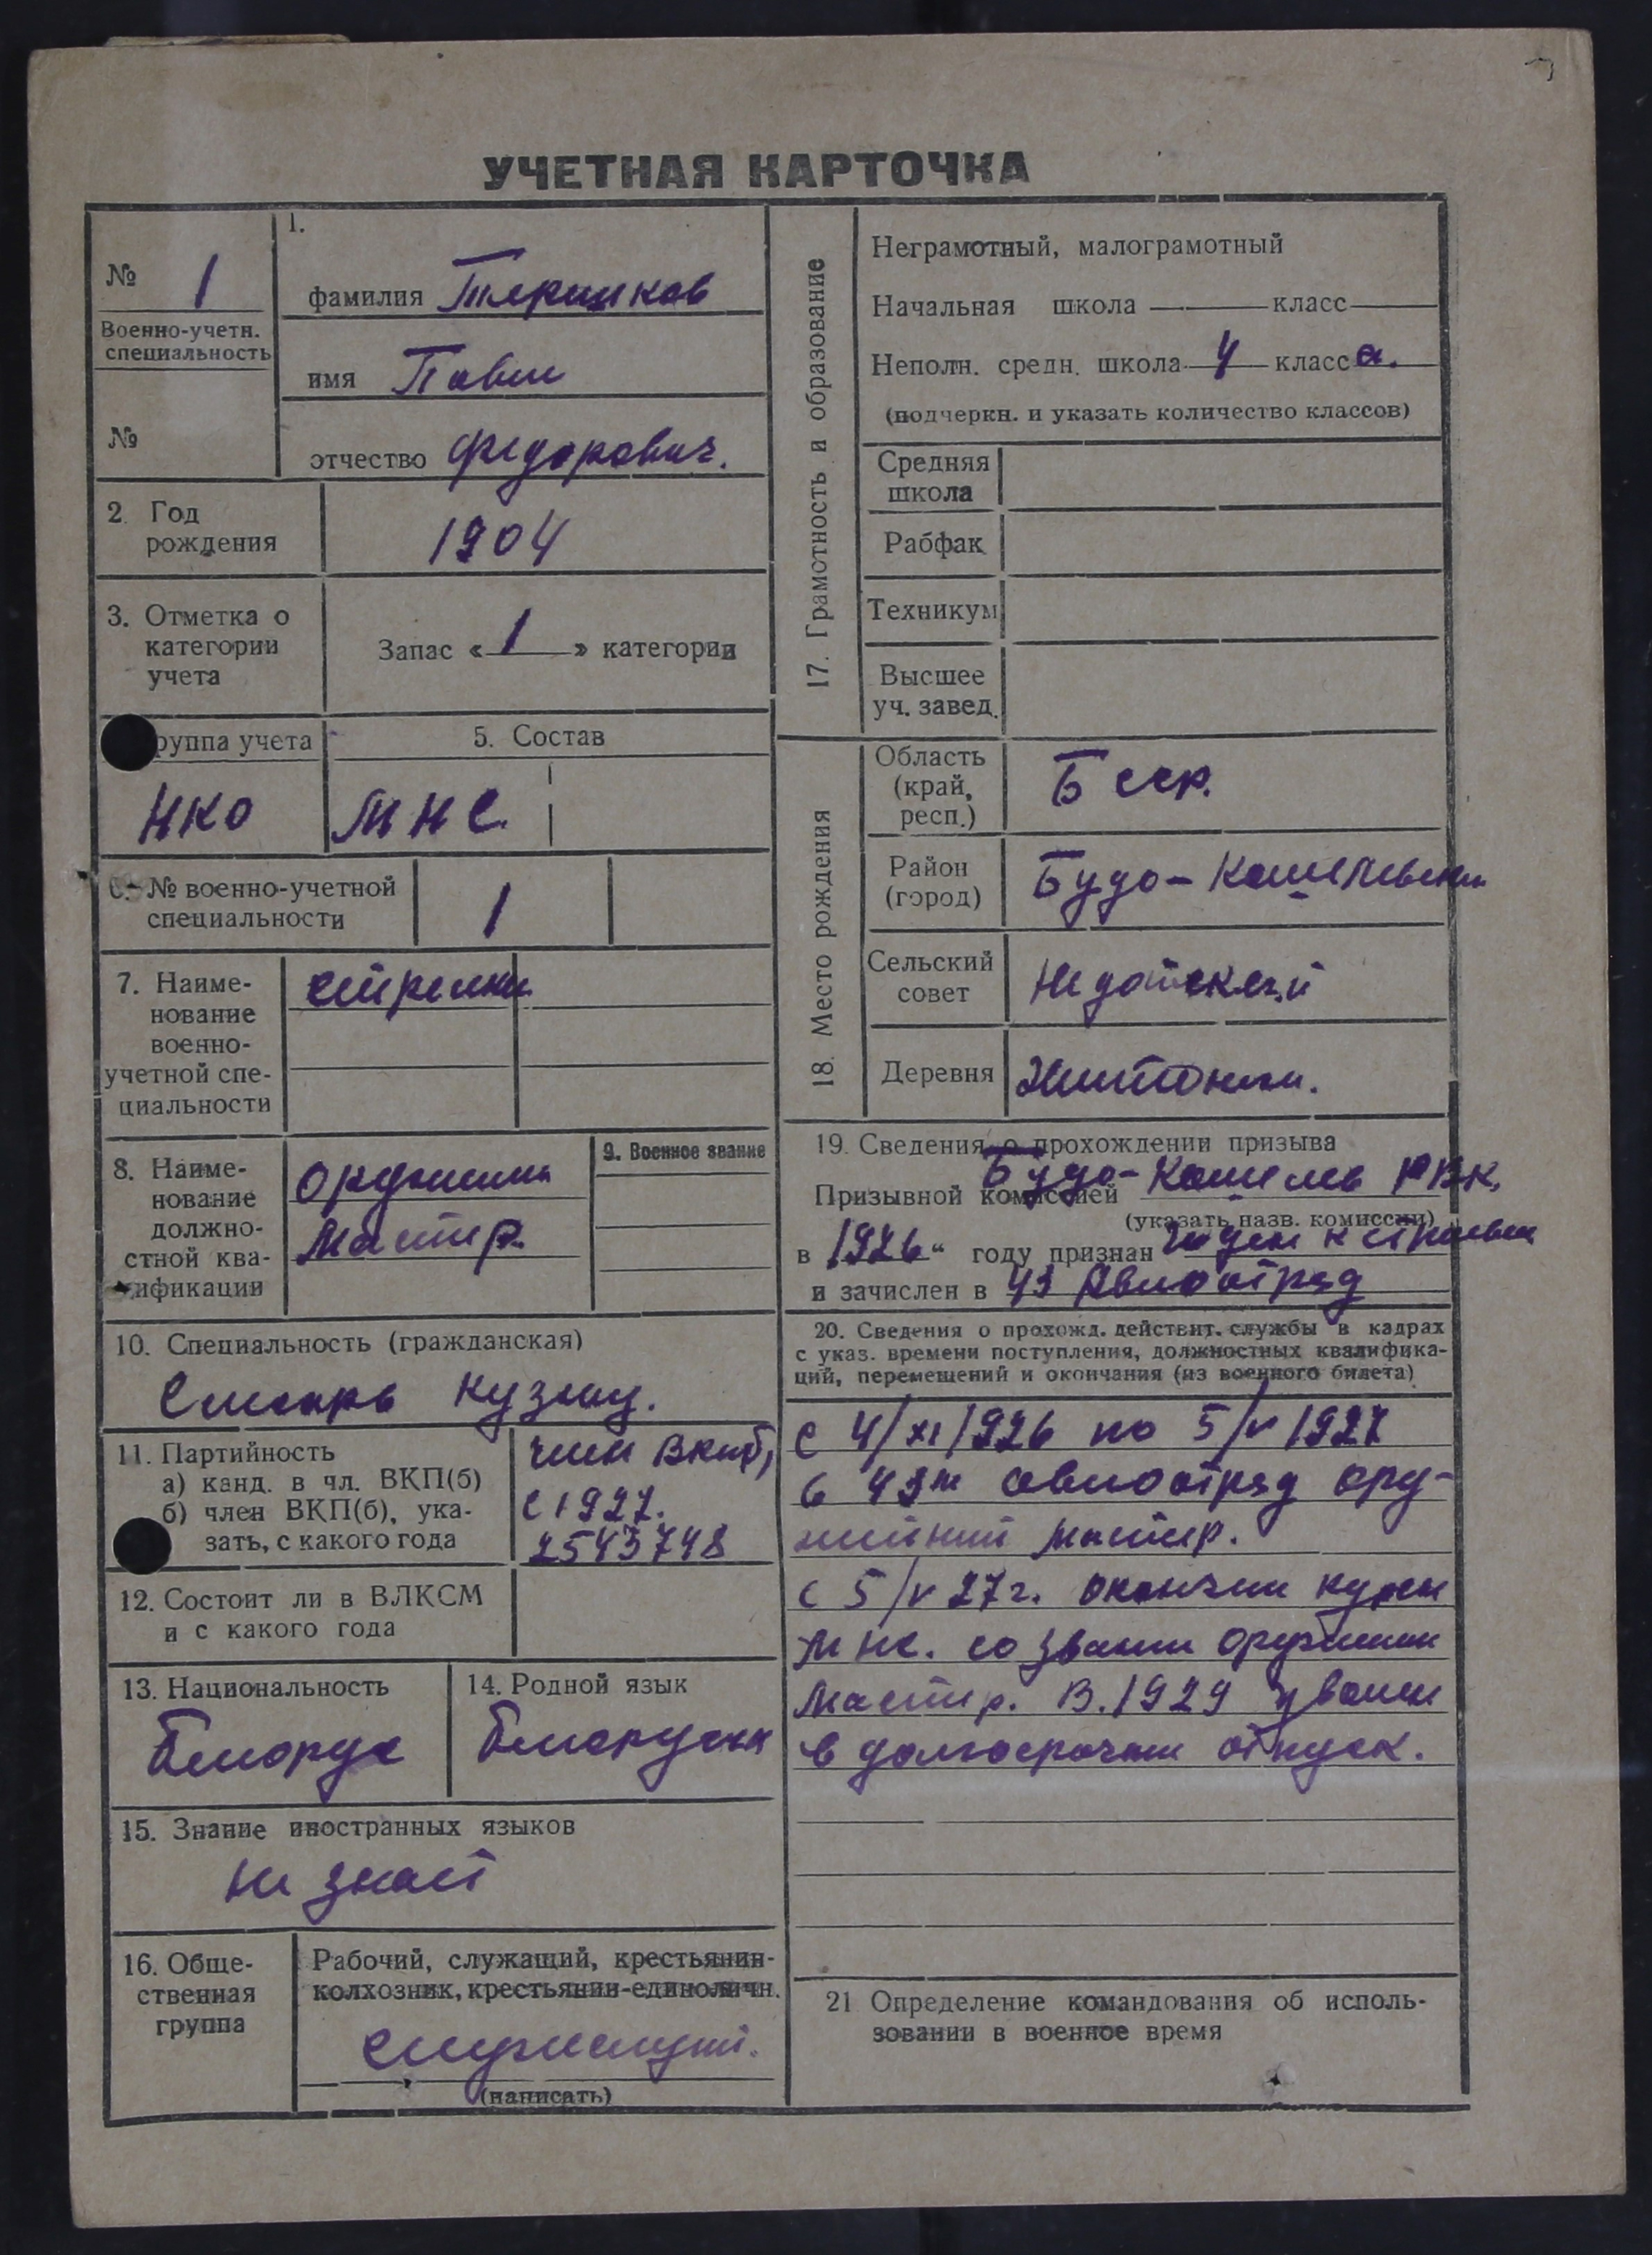 УЧЕТНАЯ КАРТОЧКА
№ 1
Военно-учетн.
специальность
№
1.
фамилия Терешков
имя Павел
отчество Федорович.
2. Год
рождения
1904
3. Отметка о
категории
учета
Запас « 1 » категории
руппа учета
НКО
5. Состав
МНС.
6. № военно-учетной
специальности
1
7. Наиме-
нование
военно-
учетной спе-
циальности
стрелки
8. Наиме-
нование
должно-
стной ква-
ификации
Мастер.
9. Военное звание
10. Специальность (гражданская)
Слесарь кузнец.
11. Партийность
а) канд. в чл. ВКП(б)
б) член ВКП(б), ука-
зать, с какого года
член ВКПб,
с 1927.
2543748
12. Состоит ли в ВЛКСМ
и с какого года
13. Национальность
Белорус
14. Родной язык
Белорусск
15. Знание иностранных языков
не знает
16. Обще-
ственная
группа
Рабочий, служащий, крестьянин-
колхозник, крестьянин-единоличн.
служащий.
(написать)
17. Грамотность и образование
Неграмотный, малограмотный
Начальная школа класс
Неполн. средн. школа 4 класса.
(подчеркн. и указать количество классов)
Средняя
школа
Рабфак
Техникум
Высшее
уч. завед.
18. Место рождения
Область
(край,
респ.)
Бсср.
Район
(город)
Будо-Кошелевски
Сельский
совет
Недойский
Деревня
19. Сведения о прохождении призыва
Призывной комиссией Будо-Кошелев РВК.
(указать назв. комиссии)
в 1926 году признан годен к строевой
и зачислен в 43 Авиоотряд
20. Сведения о прохожд. действит. службы в кадрах
с указ. времени поступления, должностных квалифика-
ций, перемещений и окончания (из военного билета)
с 4/XI 1926 по 5/V 1927
в 43м авиоотряд ору-
жейний мастер.
с 5/V 27г. окончил курсы
мнс. со звание оружейни
мастер. В. 1929 уволен
в долгосрочни отпуск.
21 Определение командования об исполь-
зовании в военное время